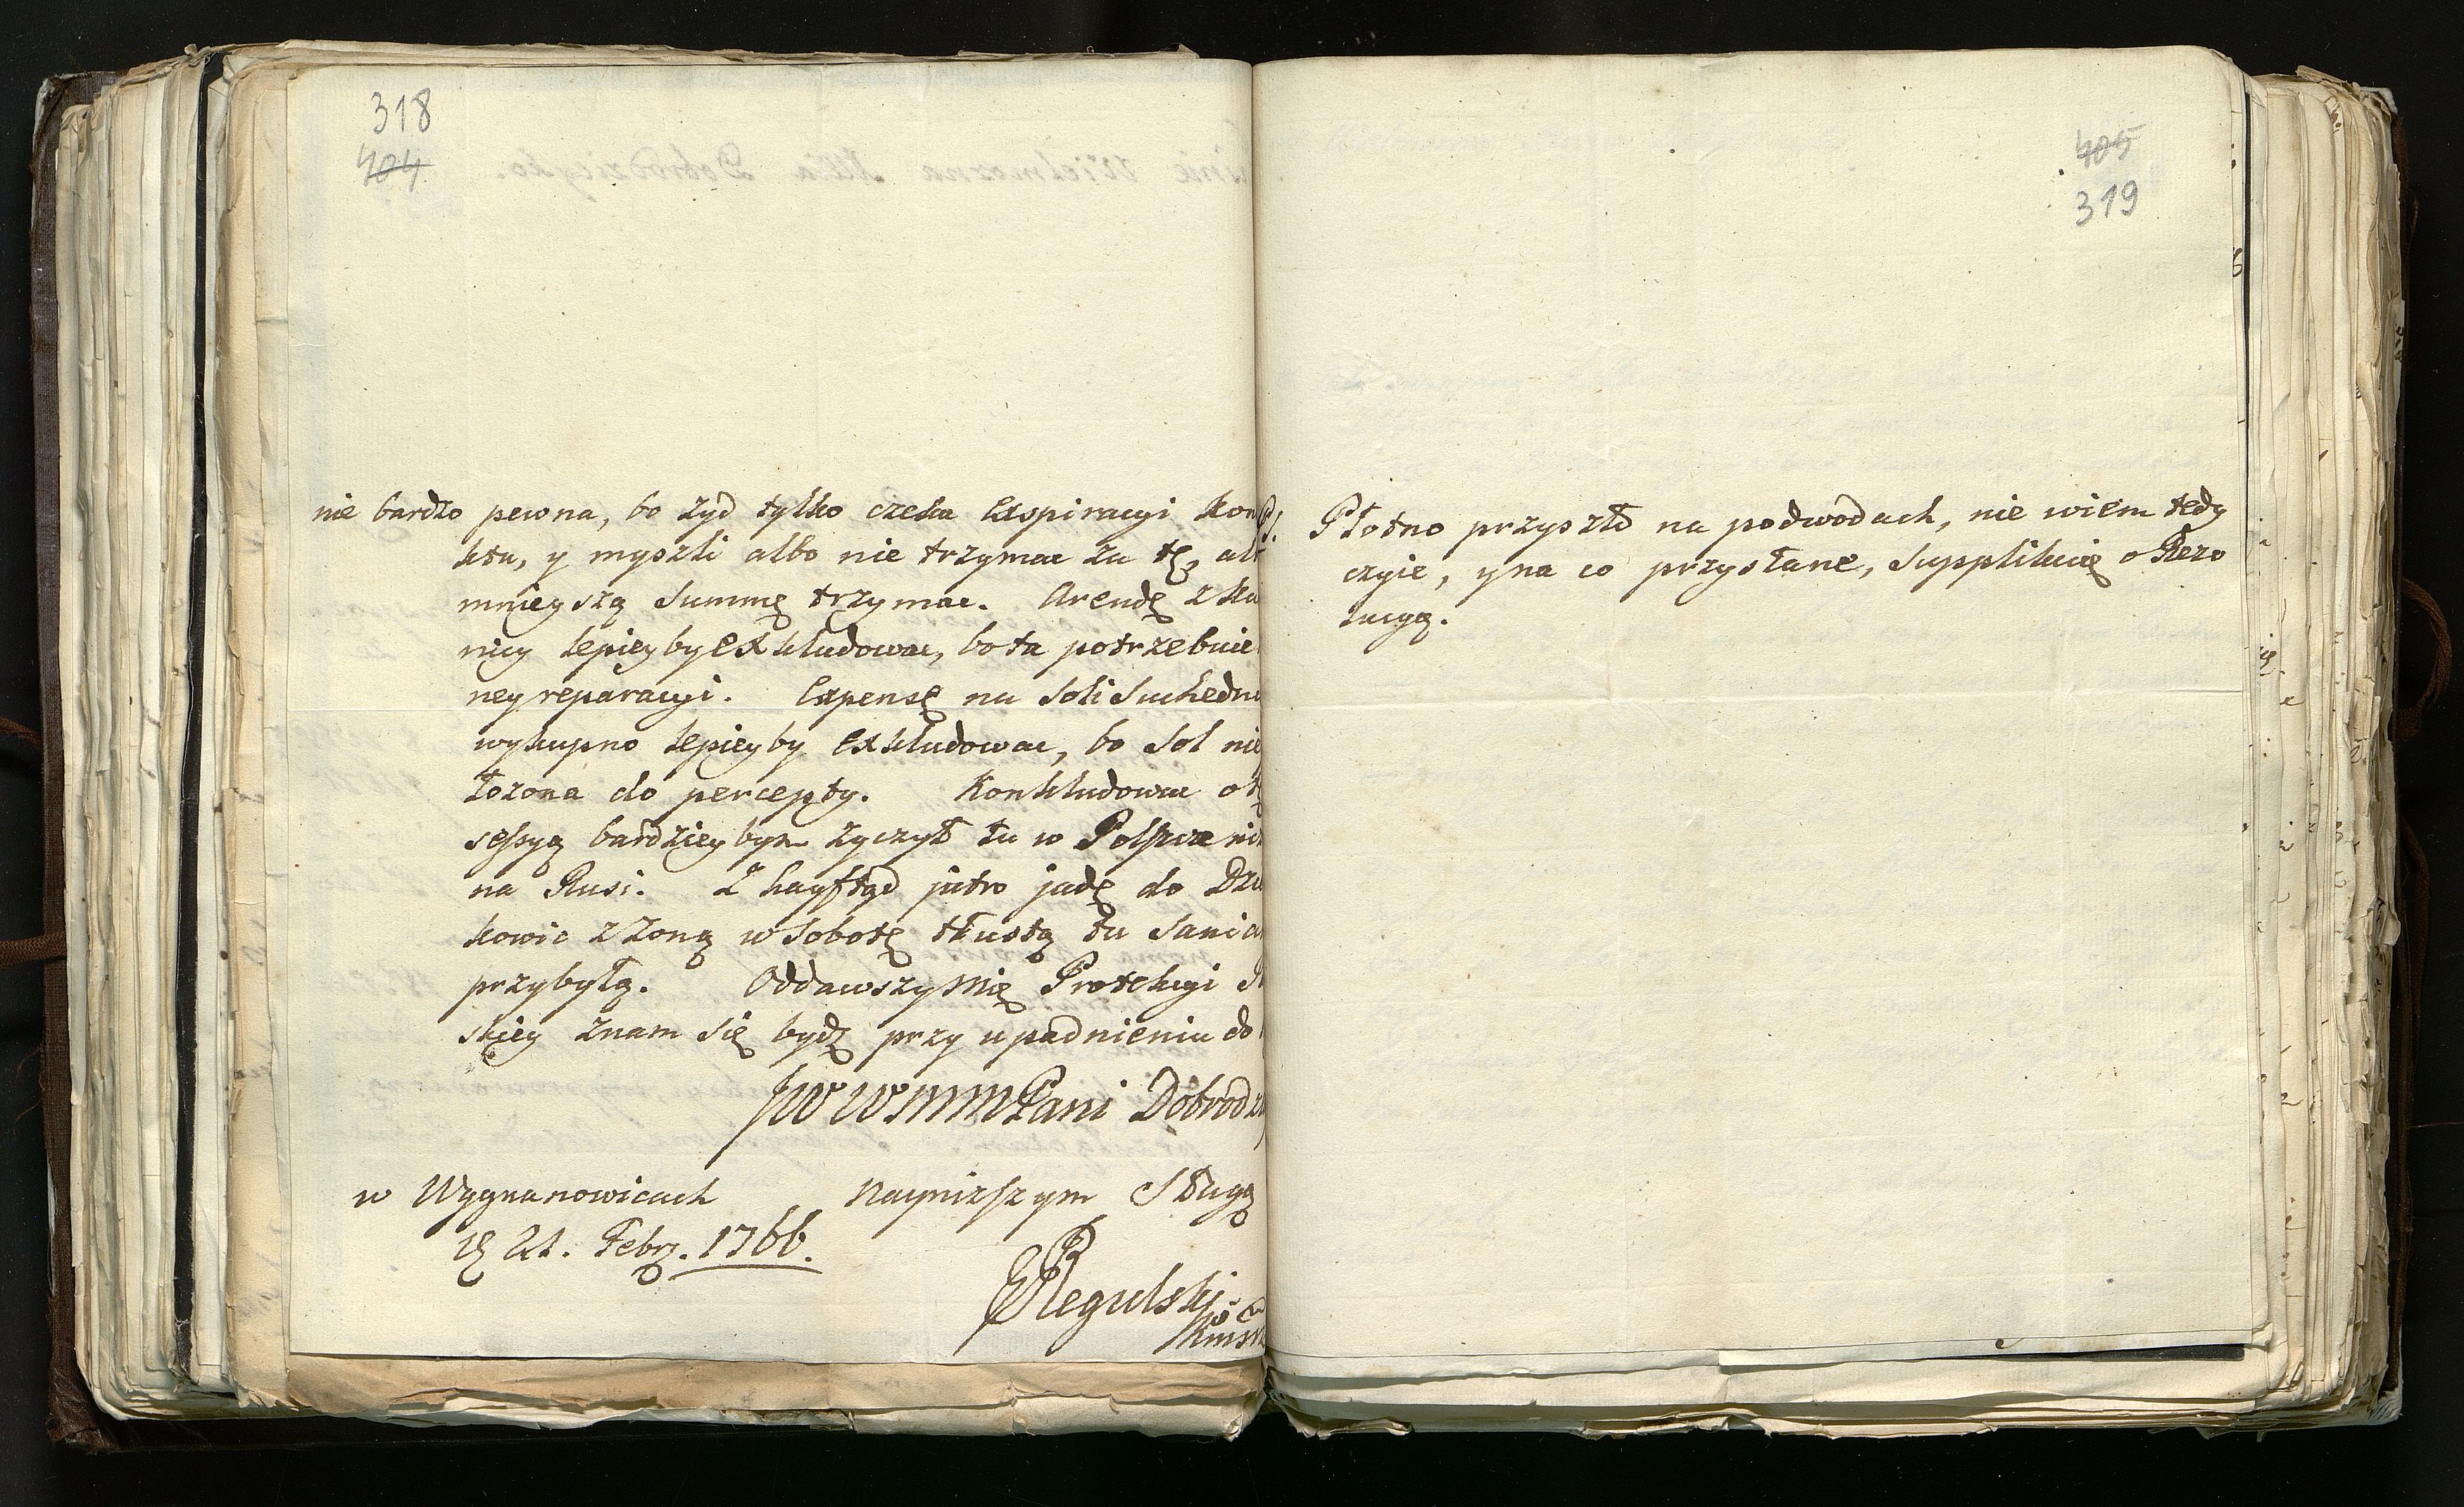 318
404
nie bardzo pewna, bo żyd tylko czeka Exspiracyi Kon
ktu, y myszli albo nie trzymac za tę, alb
mnieyszą Summę trzymac. Arendę z
nicy lepiey by exkludowac, bo ta potrzebuie
ney reparacyi. Expensę na Soli Suchedni
wykupno lepiey by exkludowac, bo Sol nie
łozona do percepty. Konkludowac o tę
sessyą bardziey bym zyczył tu w Polszcze ni
na Rusi. Z kąd jutro jadę do
kowic z Zoną w Sobotę tłustą tu Saniami
przybyłą. Oddawszy Mię Protekcyi
skiey znam się bydz przy upadnieniu do
JW WMM Pani Dobrodzi
w Wygnanowicach Nayniższym Sługą
D 21. Febr. 1766.
Regulski
405
319
PS. Płotno przyszło na podwodach, nie wiem tedy
czyie, y na co przysłane, Supplikuię o Rezo
lucyą.